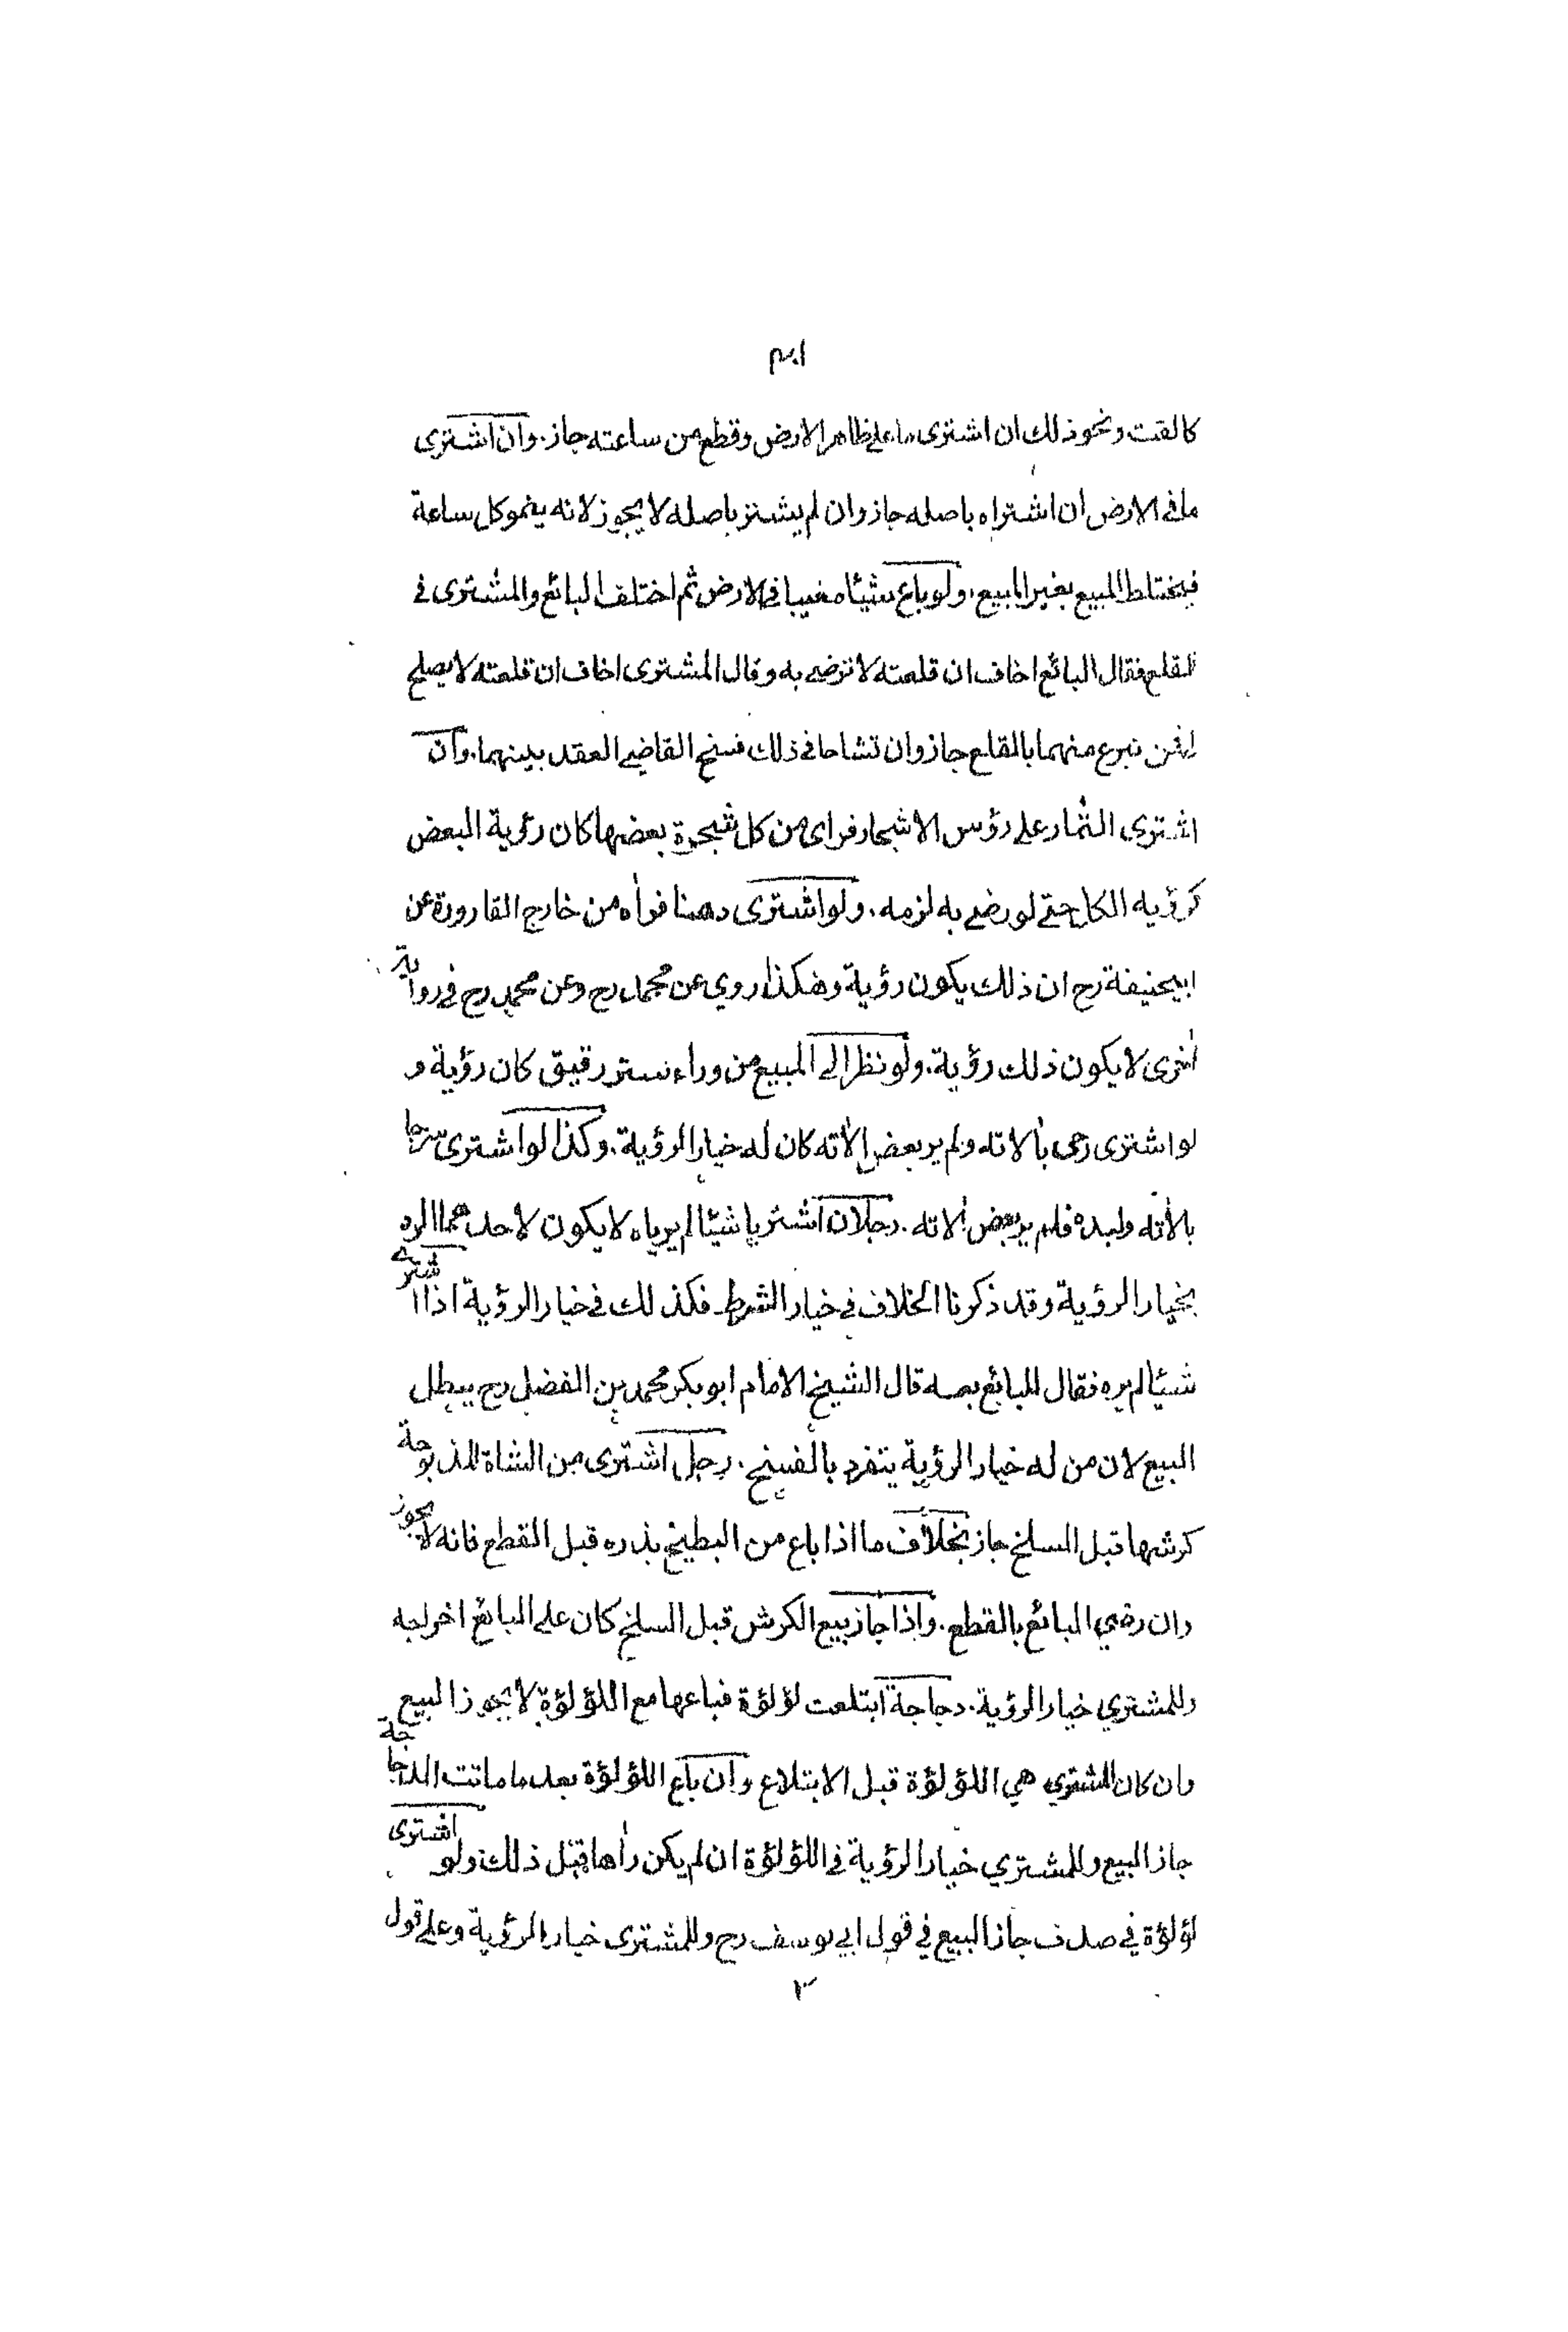 كالقت ونحو ذلك ان اشترى ما على ظاهر الارض وقطع من ساعته جاز. وان اشترى
ما في الارض ان اشتراه باصله جاز وان لم يشتر باصله لا يجوز لانه ينمو كل ساعة
فيختلط المبيع بغير المبيع. ولو باع شيئا مغيبا في الارض ثم اختلف البائع والمشترى في
القلع فقال البائع اخاف ان قلعته لا ترضى به وقال المشترى اخاف ان قلعته لا يصلح
لى فمن تبرع منهما بالقلع جاز وان تشاحا في ذلك فسخ القاضي العقد بينهما. وان
اشترى الثمار على رؤس الاشجار فراى من كل شجرة بعضها كان رؤية البعض
كرؤية الكل حتى لو رضى به لزمه. ولو اشترى دهنا فرأه من خارج القارورة عن
ابيحنيفة رح ان ذلك يكون رؤية وهكذا روي عن محمد رح وعن محمد رح في رواية
اخرى لا يكون ذلك رؤية. ولو نظر الى المبيع من وراء ستر رقيق كان رؤية و
لو اشترى رحى بألاته ولم ير بعض الأته كان له خيار الرؤية. وكذا لو اشترى سرجا
بالأته ولبده فلم ير بعض ألاته. رجلان اشتريا شيئا لم يرياه لا يكون لاحدهما الرد
بخيار الرؤية وقد ذكرنا الخلاف في خيار الشرط فكذلك في خيار الرؤية اذا اشترى
شيئا لم يره فقال للبائع بعه قال الشيخ الامام ابو بكر محمد بن الفضل رح يبطل
البيع لان من له خيار الرؤية يتفرد بالفسخ. رجل اشترى من الشاة المذبوحة
كرشها قبل السلخ جاز بخلاف ما اذا باع من البطيخ بذره قبل القطع فانه لا يجوز
وان رضي البائع بالقطع. واذا جاز بيع الكرش قبل السلخ كان على البائع اخراجه
وللمشتري خيار الرؤية. دجاجة ابتلعت لؤلؤة فباعها مع اللؤلؤة لا يجوز البيع
وان كان المشتري هي اللؤلؤة قبل الابتلاع وان باع اللؤلؤة بعد ما ماتت الدجاجة
جاز البيع وللمشتري خيار الرؤية في اللؤلؤة ان لم يكن رأها قبل ذلك ولو اشترى
لؤلؤة في صدف جاز البيع في قول ابي يوسف رح وللمشترى خيار الرؤية وعلى قول